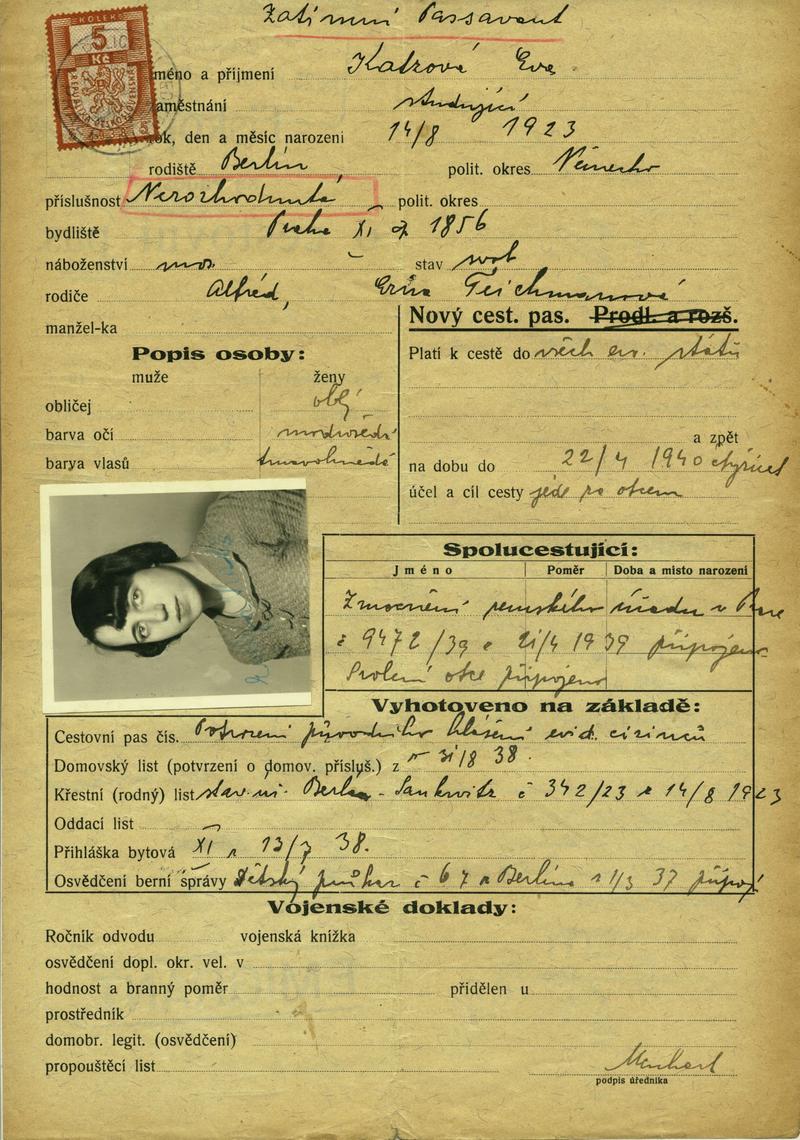 Zatímní Passavant
KOLEK
5
Kč
jméno a příjmení Katzová Eva
zaměstnání studující
rok, den a měsíc narození 14/8 1923
rodiště Berlín polit. okres Německo
příslušnost Nerozhodnutá polit. okres
bydliště Praha XI čp 1856
náboženství mos. stav svob
rodiče Alfréd, Erna Teichmanová
manžel-ka
Nový cest. pas. Prodl. a rozš.
Popis osoby:
muže ženy
obličej oblý
barva očí modrošedé
barva vlasů tmavohnědé
Platí k cestě do všech ev. států
a zpět
na dobu do 22/4 1940 čtyřicet
účel a cíl cesty jede za otcem
Spolucestující:
Jméno Poměr Doba a místo narození
Zmocnění zemského úřadu v Praze
č 9472/39 z 21/4 1939 připojeno
Svolení otce připojeno
Vyhotoveno na základě:
Cestovní pas čís. Potvrzení původního hlášení evid. cizinců
Domovský list (potvrzení o domov. přísluš.) z 31/8 38.
Křestní (rodný) list stav. úř. Berlin - Lankwitz č 342/23 z 14/8 1923
Oddací list
Přihláška bytová XI z 13/7 38.
Osvědčení berní správy Dětský průkaz č 67 z Berlína z 1/3 37 připoj
Vojenské doklady:
Ročník odvodu vojenská knížka
osvědčení dopl. okr. vel. v
hodnost a branný poměr přidělen u
prostředník
domobr. legit. (osvědčení)
propouštěcí list
podpis úředníka